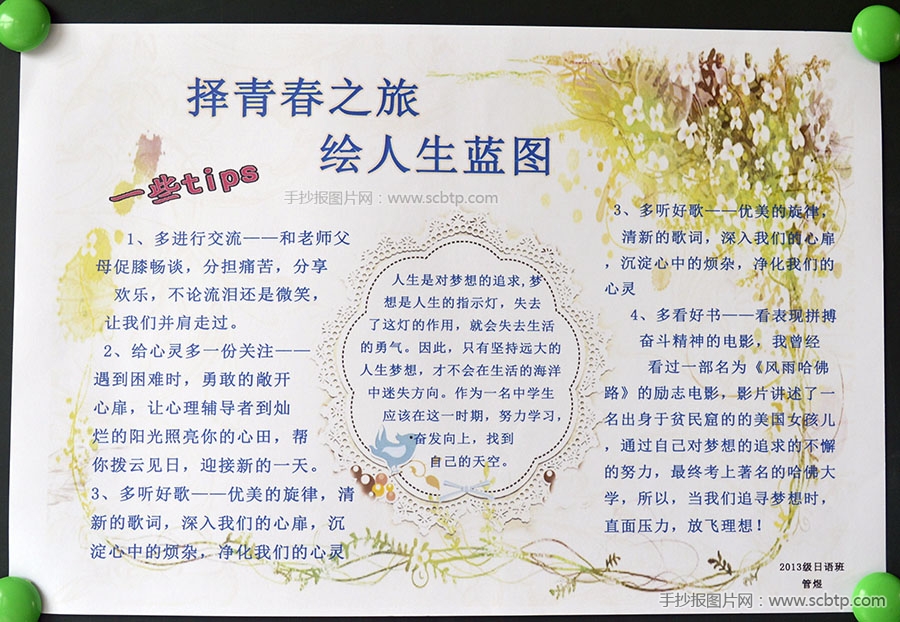 择青春之旅
绘人生蓝图
一些tips
手抄报图片网：www.scbtp.com
1、多进行交流——和老师父
母促膝畅谈，分担痛苦，分享
欢乐，不论流泪还是微笑，
让我们并肩走过。
2、给心灵多一份关注——
遇到困难时，勇敢的敞开
心扉，让心理辅导者到灿
烂的阳光照亮你的心田，帮
你拨云见日，迎接新的一天。
3、多听好歌——优美的旋律，清
新的歌词，深入我们的心扉，沉
淀心中的烦杂，净化我们的心灵
人生是对梦想的追求,梦
想是人生的指示灯，失去
了这灯的作用，就会失去生活
的勇气。因此，只有坚持远大的
人生梦想，才不会在生活的海洋
中迷失方向。作为一名中学生
应该在这一时期，努力学习，
奋发向上，找到
自己的天空。
3、多听好歌——优美的旋律，
清新的歌词，深入我们的心扉
，沉淀心中的烦杂，净化我们的
心灵
4、多看好书——看表现拼搏
奋斗精神的电影，我曾经
看过一部名为《风雨哈佛
路》的励志电影，影片讲述了一
名出身于贫民窟的的美国女孩儿
，通过自己对梦想的追求的不懈
的努力，最终考上著名的哈佛大
学，所以，当我们追寻梦想时，
直面压力，放飞理想！
2013级日语班
管煜
手抄报图片网：www.scbtp.com